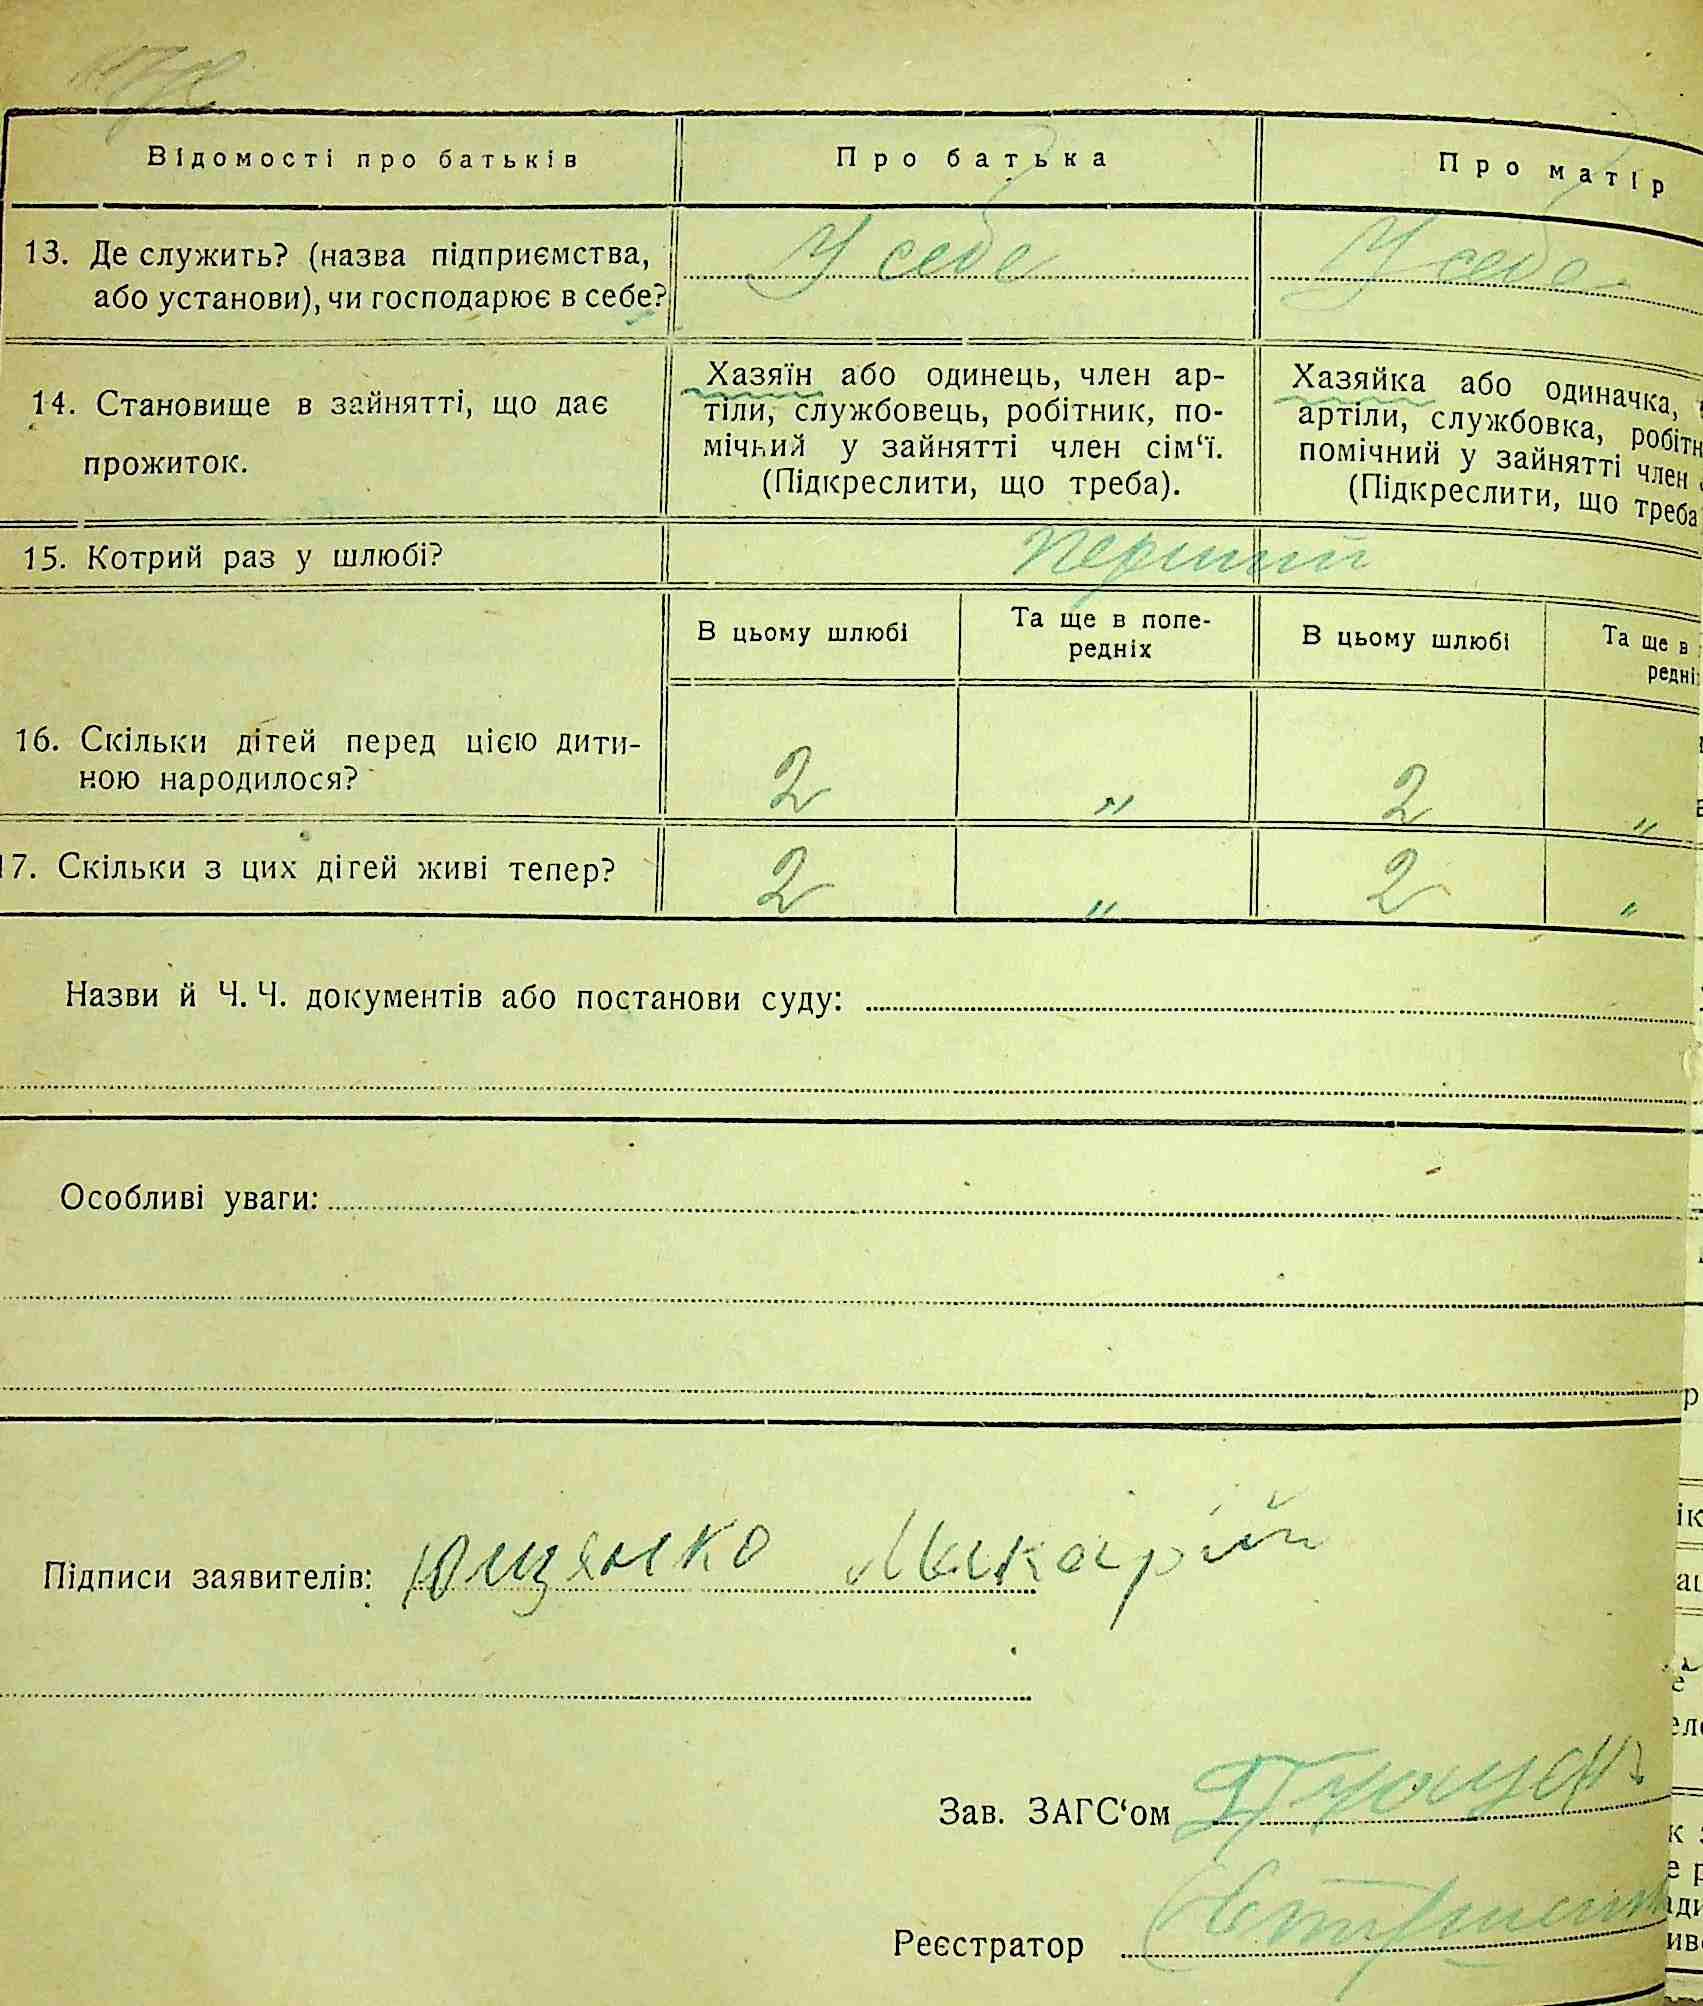 Відомості про батьків
Про батька
Про матір
13. Де служить? (назва підприємства,
або установи), чи господарює в себе?
У себе
У себе
14. Становище в зайнятті, що дає
прожиток.
Хазяїн або одинець, член ар-
тіли, службовець, робітник, по-
мічний у зайнятті член сім‘ї.
(Підкреслити, що треба).
Хазяйка або одиначка,
артіли, службовка, робітн
помічний у зайнятті член
(Підкреслити, що треба
15. Котрий раз у шлюбі?
перший
В цьому шлюбі
Та ще в попе-
редніх
В цьому шлюбі
Та ще в
редні
16. Скільки дітей перед цією дити-
ною народилося?
2 „ 2 „
17. Скільки з цих дітей живі тепер?
2 „ 2 „
Назви й Ч. Ч. документів або постанови суду:
Особливі уваги:
Підписи заявителів: Ющенко Макарій
Зав. ЗАГС‘ом
Реєстратор